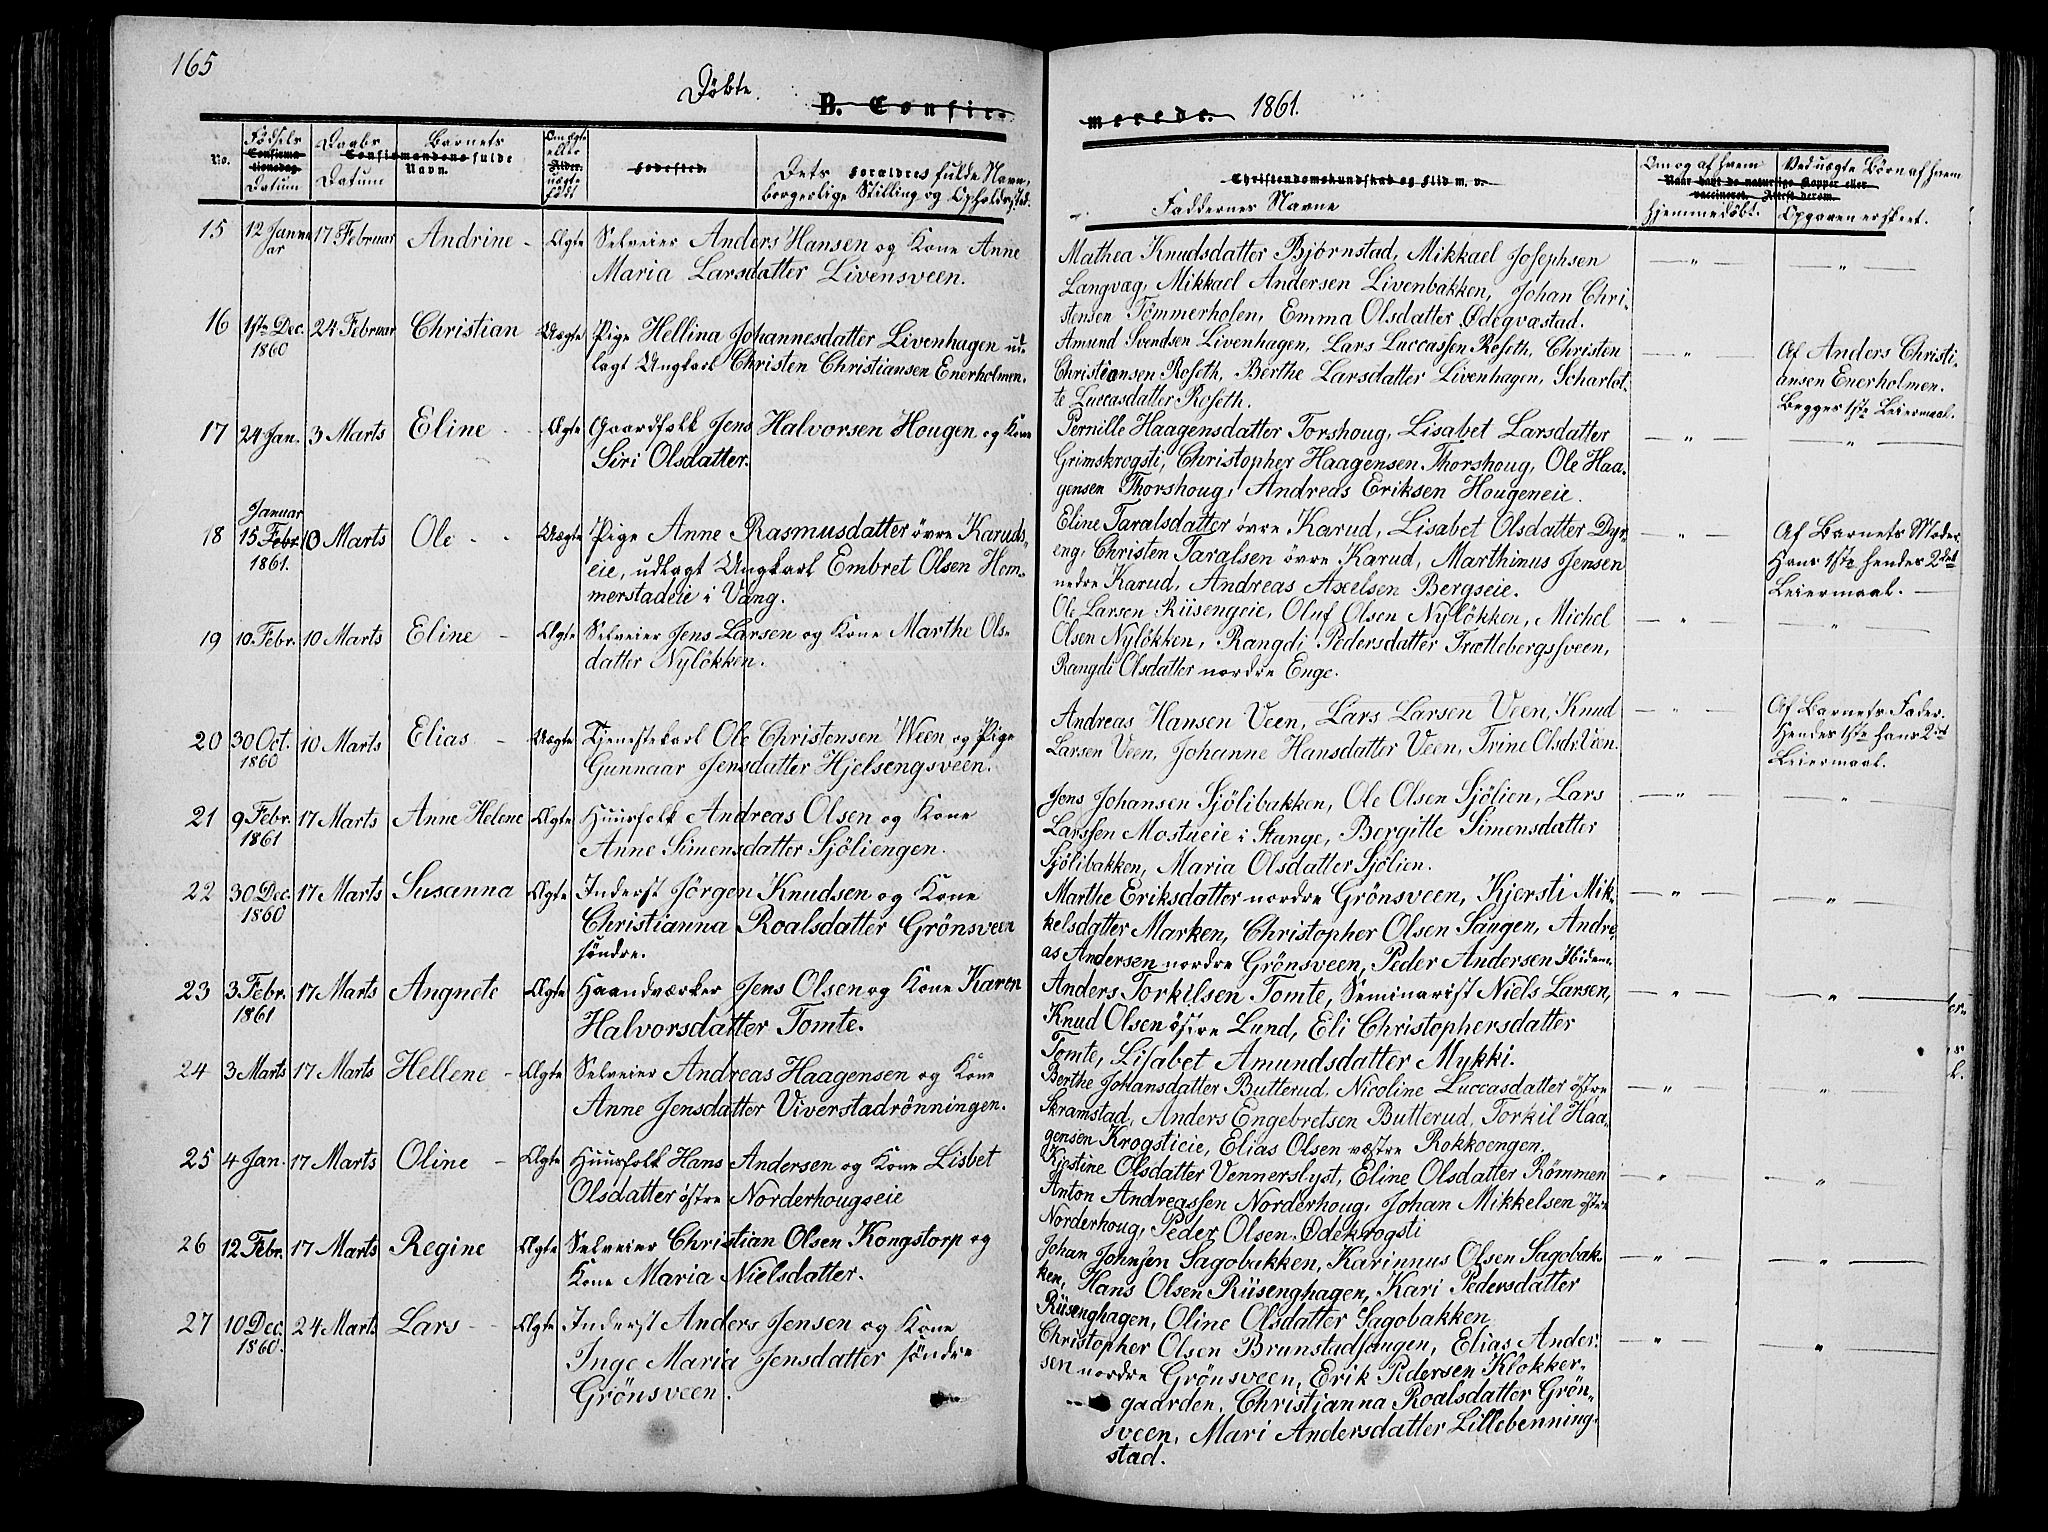 165
Döbte.
B. Confir-
merede.
1861.
No.
Födsels
Confirma-
tionsdag
Datum
Daabs
Datum
Barnets
Confirmandens fulde
Navn.
Om ægte
eller
Alder.
uægte
født
Fødested.
Dets Forældres fulde Navn,
borgerlige Stilling og Opholdssted.
Christendomskundskab og Flid m. v.
Faddernes Navne
Om og af hvem
hjemmedøbt.
Naar havt de naturlige Kopper eller
vaccineret. Attest derom.
Ved uægte Börn af hvem
Opgaven er skeet.
15 12 Janu-
ar 17 Februar Andrine - Ægte Selveier Anders Hansen og Kone Anne
Maria Larsdatter Livensveen.
Mathea Knudsdatter Bjørnstad, Mikkael Josephsen
Langvæg, Mikkael Andersen Livenbakken, Johan Chri-
stensen Tömmerholen, Emma Olsdatter Ødegvæstad.
16 1ste Dec.
1860 24 Februar Christian Uægte Pige Hellina Johannesdatter Livenhagen ud-
lagt Ungkarl Christen Christiansen Enerholmen.
Amund Svendsen Livenhagen, Lars Luccassen Roseth, Christen
Christiansen Roseth, Berthe Larsdatter Livenhagen, Scharlot-
te Luccasdatter Roseth.
Af Anders Christi-
ansen Enerholmen.
Begges 1ste Leiermaal.
17 24 Jan. 3 Marts Eline - - Ægte Gaardfolk Jens Halvorsen Hougen og Kone
Siri Olsdatter.
Pernille Haagensdatter Torshoug, Lisabet Larsdatter
Grimskrogsti, Christopher Haagensen Thorshoug, Ole Haa-
gensen Thorshoug, Andreas Eriksen Hougeneie.
18 Januar
15 Febr.
1861. 10 Marts Ole - - Uægte Pige Anne Rasmusdatter övre Karuds-
eie, udlagt Ungkarl Embret Olsen Hom-
merstadeie i Vang.
Eline Taralsdatter övre Karud, Lisabet Olsdatter Dyr-
eng, Christen Taralsen övre Karud, Marthinus Jensen
nedre Karud, Andreas Axelsen Bergseie.
Af Barnets Moder.
Hans 1ste hendes 2det
Leiermaal.
19 10 Febr. 10 Marts Eline - Ægte Selveier Jens Larsen og Kone Marthe Ols-
datter Nylökken.
Ole Larsen Riisengeie, Oluf Olsen Nylökken, Michel
Olsen Nylökken, Rangdi Pedersdatter Trættebergsveen,
Rangdi Olsdatter nordre Enge.
20 30 Oct.
1860 10 Marts Elias - Uægte Tjenestekarl Ole Christensen Ween og Pige
Gunnaar Jensdatter Hjelsengsveen.
Andreas Hansen Veen, Lars Larsen Veen, Knud
Larsen Veen, Johanne Hansdatter Veen, Trine Olsdr. Veen.
Af Barnets Fader.
Hendes 1ste hans 2det
Leiermaal.
21 9 Febr.
1861 17 Marts Anne Helene Ægte Huusfolk Andreas Olsen og Kone
Anne Simensdatter Sjöliengen.
Jens Johansen Sjölibakken, Ole Olsen Sjölien, Lars
Larssen Mostueie i Stange, Bergitte Simensdatter
Sjölibakken, Maria Olsdatter Sjölien.
22 30 Dec.
1860 17 Marts Susanna Ægte Inderst Jörgen Knudsen og Kone
Christianna Roalsdatter Grönsveen
söndre.
Marthe Eriksdatter nordre Grönsveen, Kjersti Mik-
kelsdatter Marken, Christopher Olsen Saugen, Andre-
as Andersen nordre Grönsveen, Peder Andersen Ibidem
23 3 Febr.
1861 17 Marts Angnete Ægte Haandværker Jens Olsen og Kone Karen
Halvorsdatter Tomte.
Anders Torkilsen Tomte, Seminarist Niels Larsen,
Knud Olsen östre Lund, Eli Christophersdatter
Tomte, Lisabet Amundsdatter Mykki.
24 3 Marts 17 Marts Hellene - Ægte Selveier Andreas Haagensen og Kone
Anne Jensdatter Viverstadrönningen.
Berthe Johansdatter Butterud, Nicoline Luccasdatter östre
Skramstad, Anders Engebretsen Butterud, Torkil Haa-
gensen Krogstieie, Elias Olsen vestre Rokkoengen.
25 4 Jan. 17 Marts Oline - Ægte Huusfolk Hans Andersen og Kone Lisbet
Olsdatter östre Norderhougseie
Kjestine Olsdatter Vennerslyst, Eline Olsdatter Römmen
Anton Andreassen Norderhoug, Johan Mikkelsen östre
Norderhoug, Peder Olsen Ödekrogsti
26 12 Febr. 17 Marts Regine Ægte Selveier Christian Olsen Kongstorp og
Kone Maria Nielsdatter.
Johan Johnsen Sagobakken, Karinnus Olsen Sagobak-
ken, Hans Olsen Riisenghagen, Kari Pedersdatter
Riisenghagen, Oline Olsdatter Sagobakken
27 10 Dec.
1860. 24 Marts Lars - - Ægte Inderst Anders Jensen og Kone
Inge Maria Jensdatter söndre
Grönsveen.
Christopher Olsen Brunstadsaugen, Elias Ander-
sen nordre Grönsveen, Erik Pedersen Klokker-
gaarden, Christianna Roalsdatter Grön-
sveen, Mari Andersdatter Lillebenning-
stad.